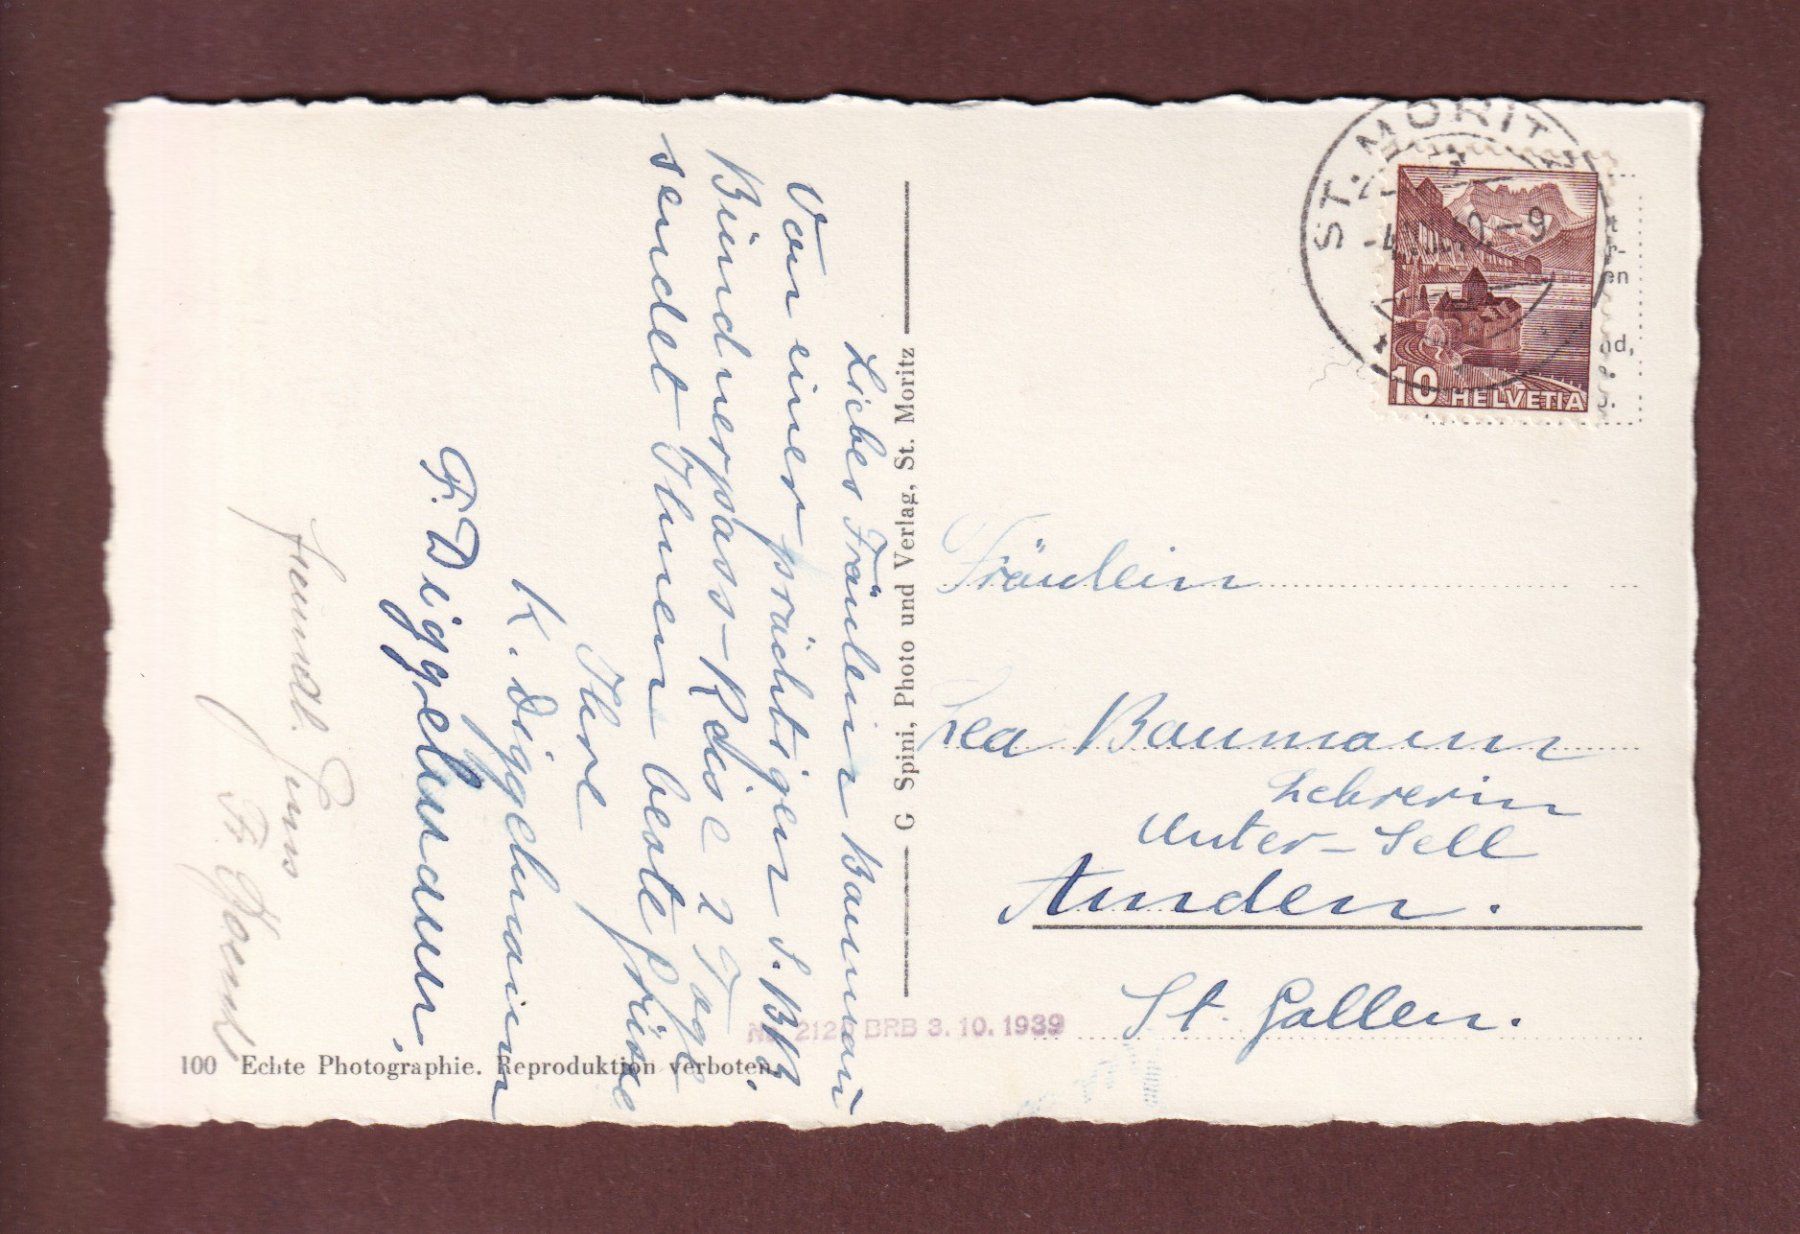 Liebes Fräulein Baumann
Von einer prächtigen S.B.B.
Bündnerpass-Reise 2 Tage
sendet Ihnen beste Grüsse
Ihre
K. Diggelmann
F. Diggelmann,
freundl. Gruss
G Spini, Photo und Verlag, St. Moritz
100 Echte Photographie. Reproduktion verboten.
BRB 3. 10. 1939
ST. MORITZ
10 HELVETIA
Fräulein
Lea Baumann
Lehrerin
Unter-Sell
Amden.
St. Gallen.